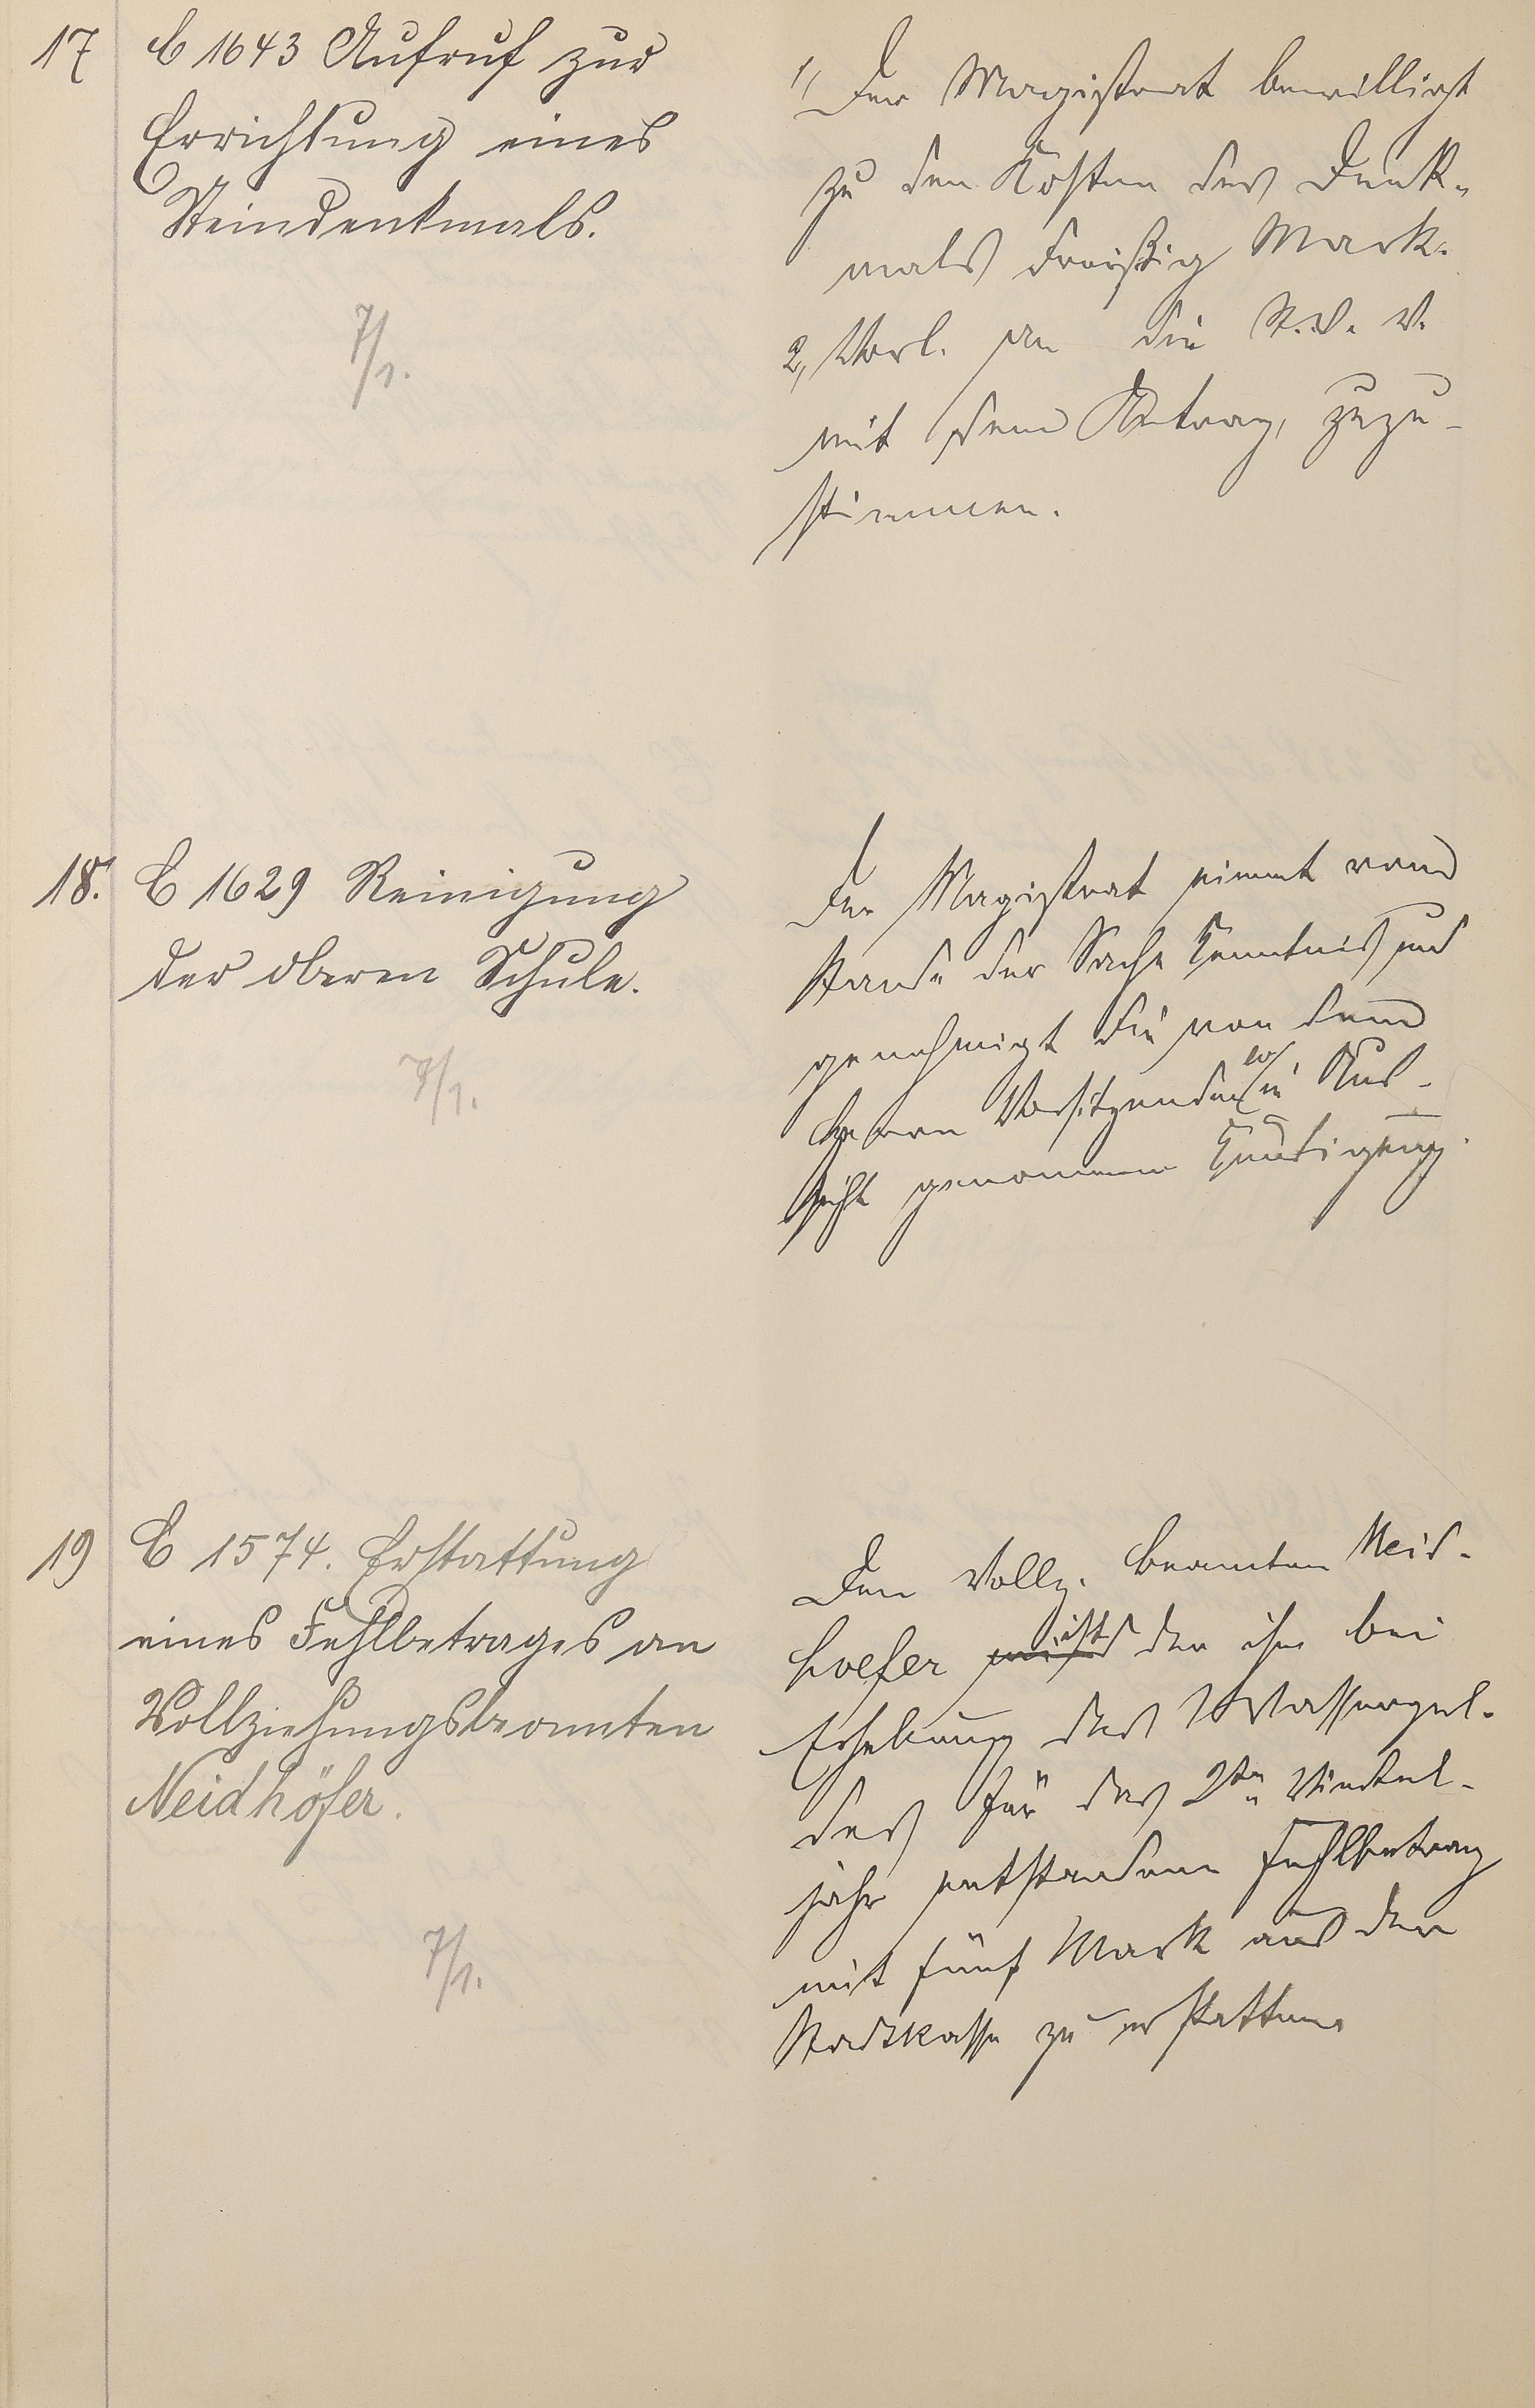 17
C 1643 Aufruf zur
Errichtung eines
Steindenkmals.
7/1.
1, Der Magistrat bewilligt
zu den Kosten des Denk-
mals dreißig Mark.
2, Vorl. an die St. V. V.
mit dem Antrag, zuzu-
stimmen.
18.
C 1629 Reinigung
der oberen Schule.
7/1.
Der Magistrat nimmt vom
Stande der Sache Kenntnis und
genehmigt die von dem
Herrn Vorsitzenden in Aus-
sicht genommene Kündigung.
19
C 1574. Erstattung
eines Fehlbetrages an
Vollziehungsbeamten
Neidhöfer.
7/1.
Dem Vollz. Beamten Neid-
hoefer ist der ihm bei
Erhebung des Wassergel-
des für das 2te Viertel-
jahr entstandene Fehlbetrag
mit fünf Mark aus der
Stadtkasse zu erstatten